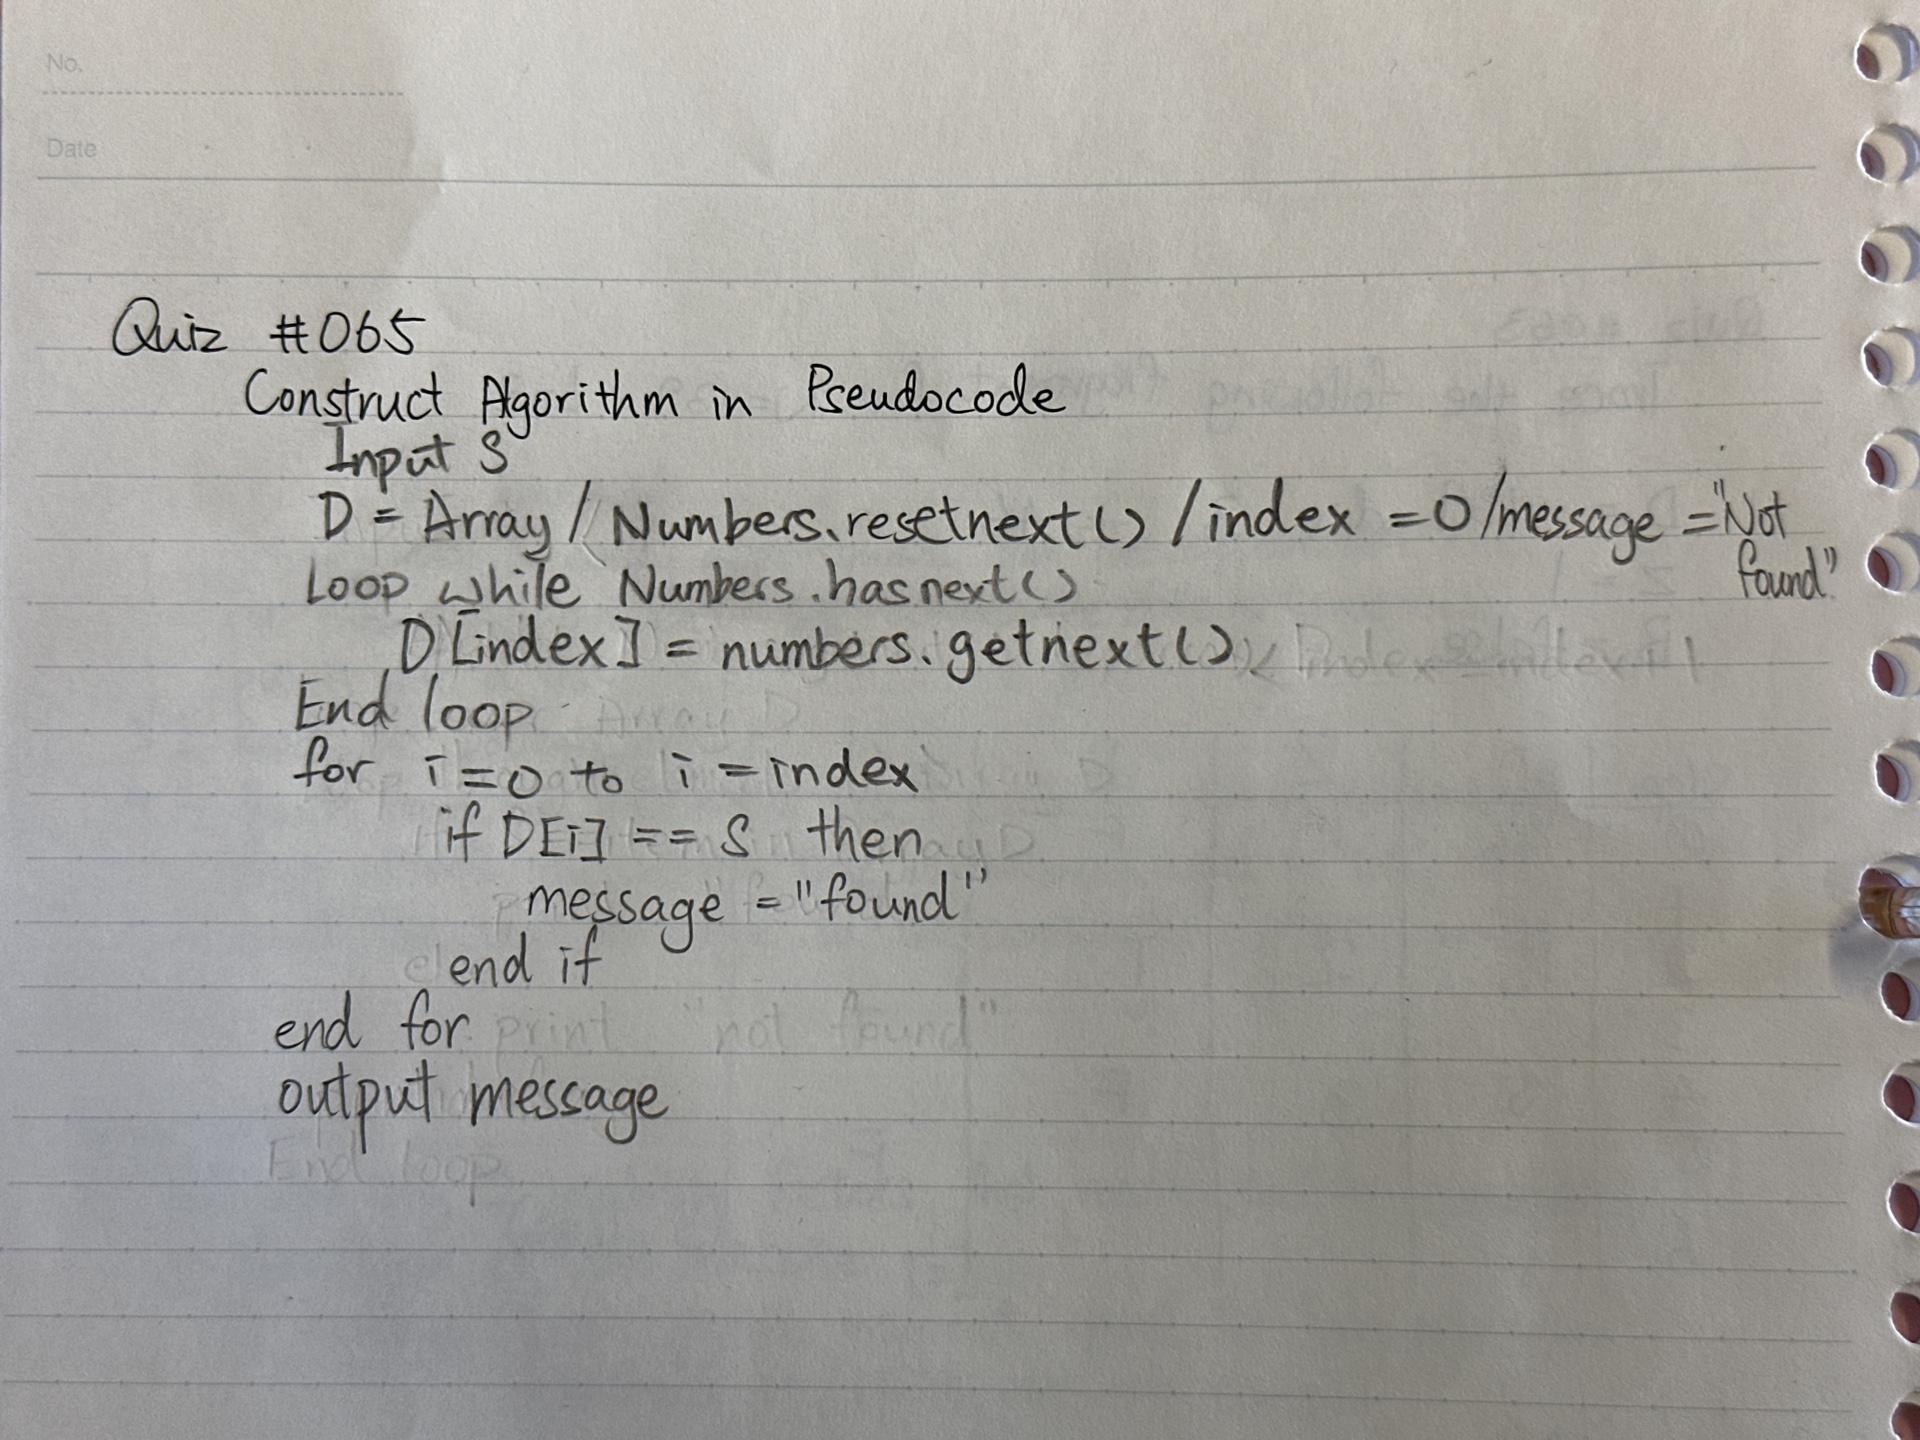 No.
Date
Quiz #065
Construct Algorithm in Pseudocode
Input S
D = Array / Numbers.resetnext() / index = 0 / message = "Not found"
Loop while Numbers.hasnext()
D[index] = numbers.getnext()
End loop
for i = 0 to i = index
if D[i] == S then
message = "found"
end if
end for
output message
End loop